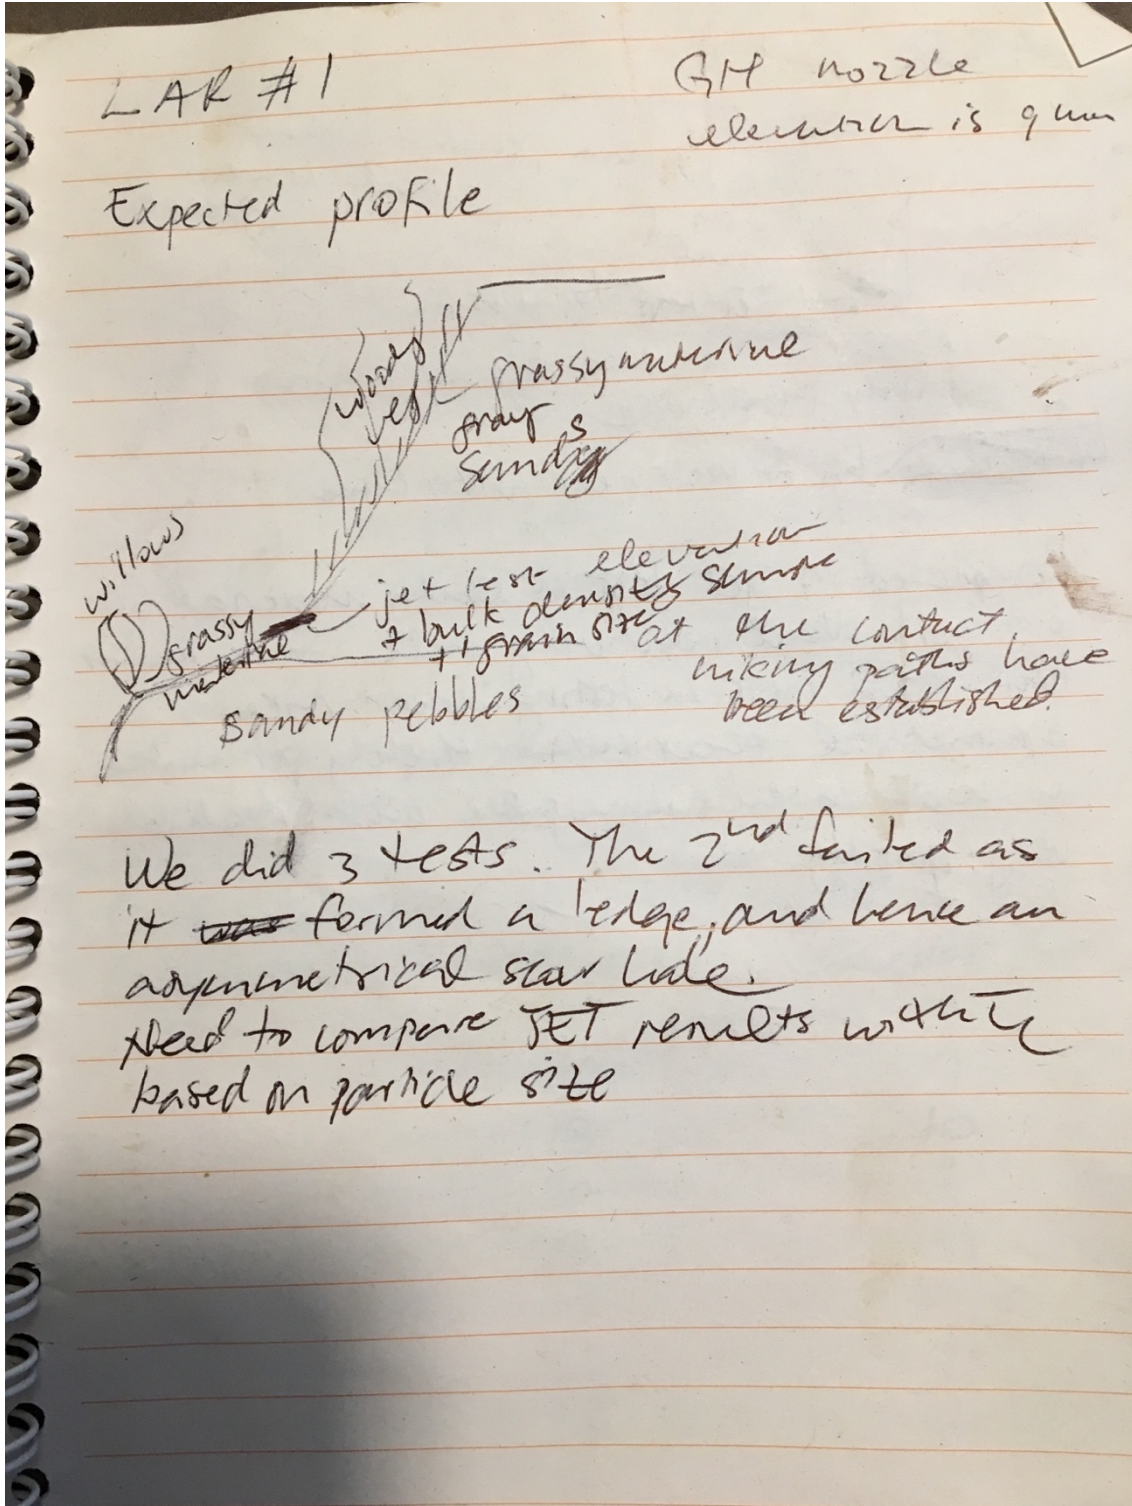 LAR #1
GH nozzle
elevation is 9 mm
Expected profile
woody
veg
grassy material
gray
sands
willows
grassy
material
jet test elevation
+ bulk density sample
+ grain size
at the contact,
hiking paths have
been established.
Sandy pebbles
We did 3 tests. The 2nd failed as
it was formed a ledge, and hence an
asymmetrical scour hole.
Need to compare JET results with τc
based on particle size